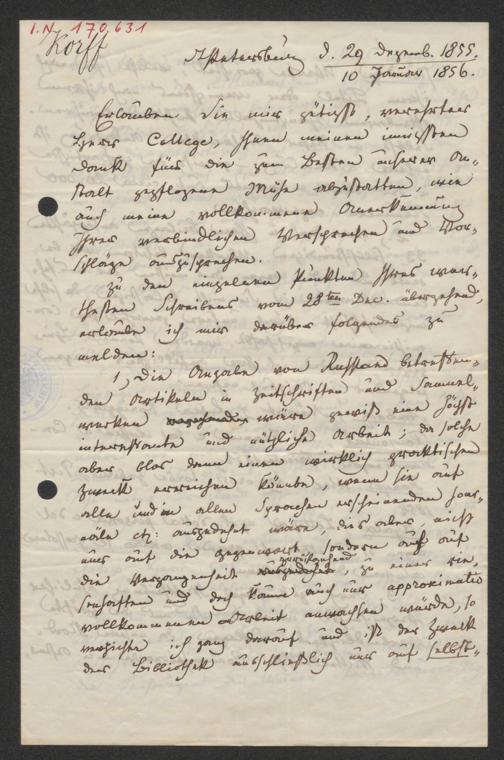 I.N. 170.631
Korff
St Petersburg d. 29 Dezemb. 1855.
10 Januar 1856.
Erlauben Sie mir gütigst, verehrtester
Herr College, Ihnen meinen innigsten
Dank für die zum Besten unserer An-
stalt gepflogene Mühe abzustatten, wie
auch meine vollkommene Anerkennung
Ihrer verbindlichen Versprechen und Vor-
schläge auszusprechen.
Zu den einzelnen Punkten Ihres wer-
thesten Schreibens vom 28ten Dec. übergehend,
erlaube ich mir darüber folgendes zu
melden:
1, Die Angabe von Russland betreffen-
den Artikeln in Zeitschriften und Sammel-
werken wäre gewiß eine höchst
interessante und nützliche Arbeit; da solche
aber blos dann einen wirklich praktischen
Zweck erreichen könnte, wenn sie auf
alle und in allen Sprachen erscheinenden Jour-
näle etz: ausgedehnt wäre, dies aber, nicht
nur auf die Gegenwart sondern auch auf
die Vergangenheit zurückgehend, zu einer rie-
senhaften und doch kaum auch nur approximativ
vollkommenen Arbeit anwachsen würde, so
verzichte ich ganz darauf und ist der Zweck
der Bibliothek ausschließlich nur auf selbst-